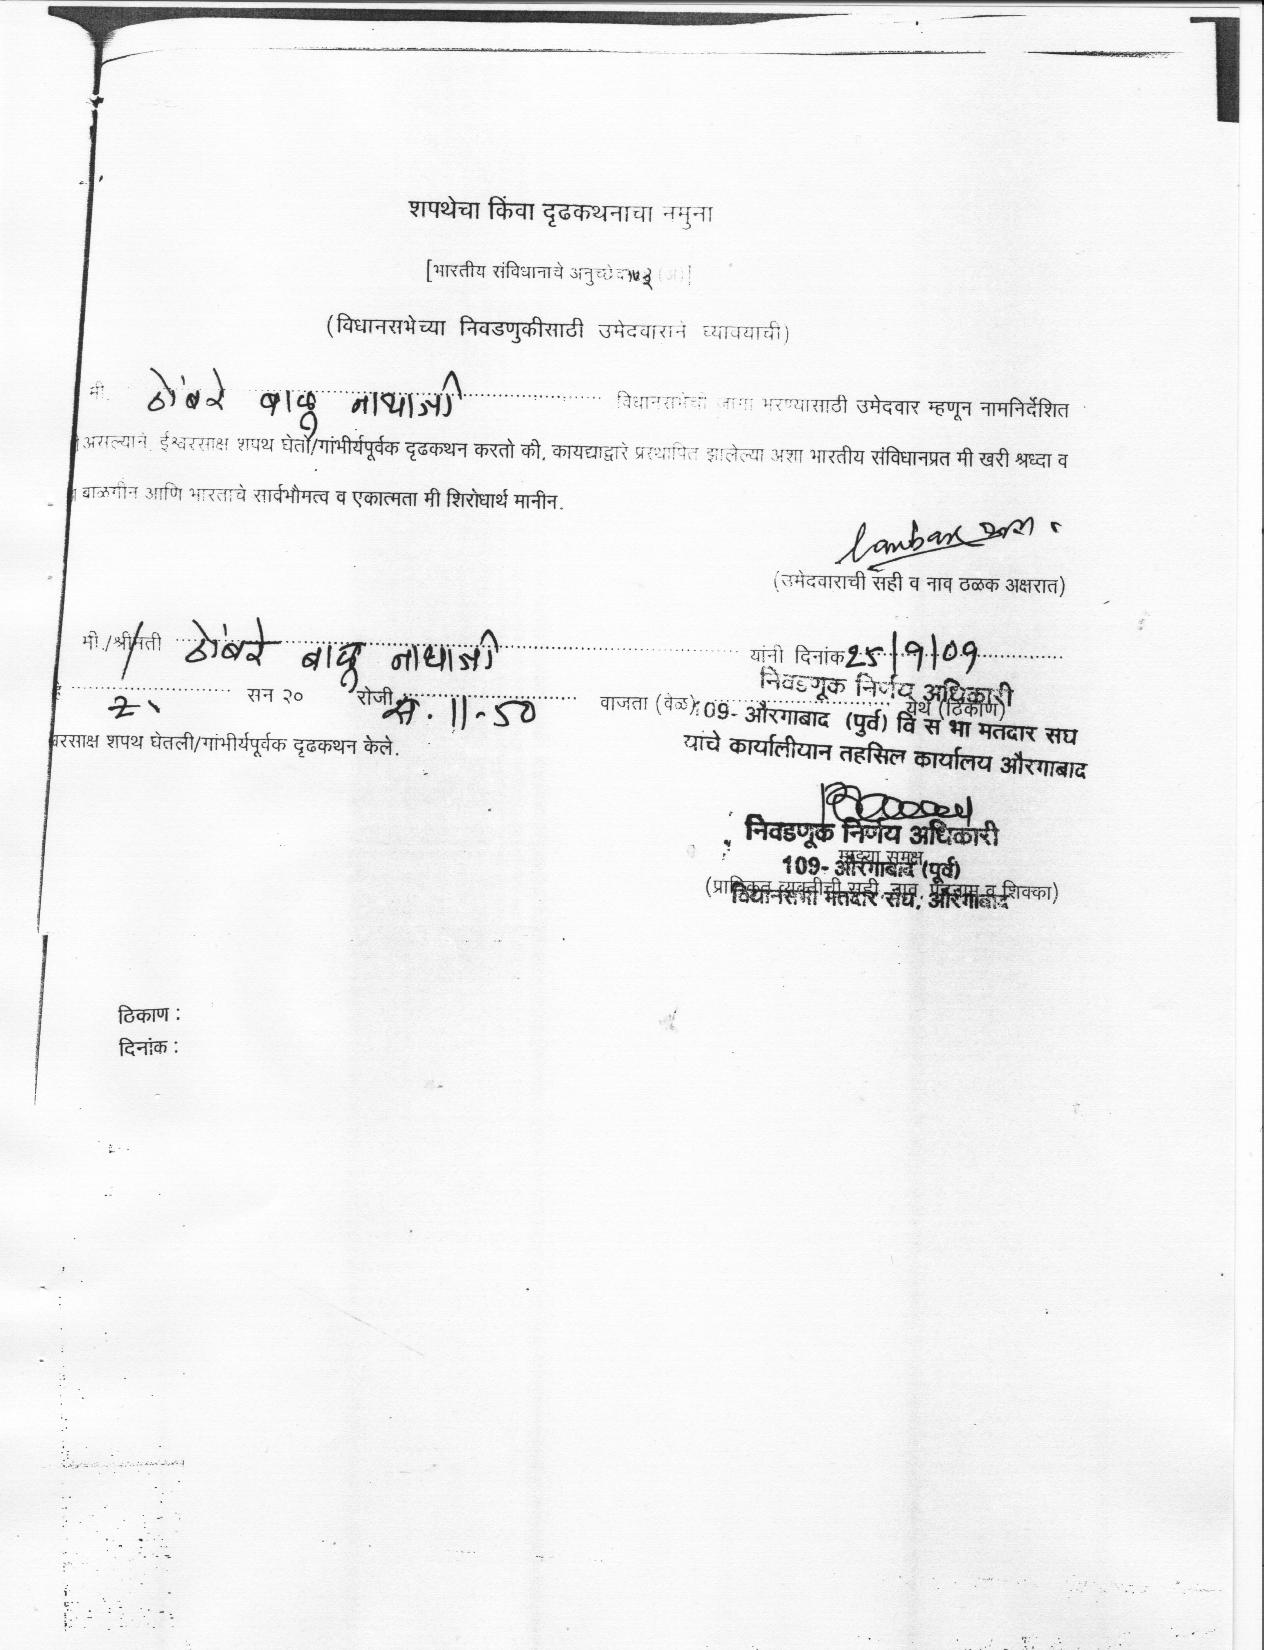 शपथेचा किंवा दृढकथनाचा नमुना
[भारतीय संविधानाचे अनुच्छेद १७३ (अ)]
(विधानसभेच्या निवडणुकीसाठी उमेदवाराने घ्यावयाची)
मी. ठोंबरे बाळू नाथाजी विधानसभेची जागा भरण्यासाठी उमेदवार म्हणून नामनिर्देशित
असल्याने, ईश्वरसाक्ष शपथ घेतो/गांभीर्यपूर्वक दृढकथन करतो की, कायद्याद्वारे प्रस्थापित झालेल्या अशा भारतीय संविधानप्रत मी खरी श्रध्दा व
बाळगीन आणि भारताचे सार्वभौमत्व व एकात्मता मी शिरोधार्थ मानीन.
(उमेदवाराची सही व नाव ठळक अक्षरात)
मी./श्रीमती ठोंबरे बाळू नाथाजी यांनी दिनांक 25/9/09
सन २० रोजी स. 11-50 वाजता (वेळ) येथे (ठिकाण)
निवडणूक निर्णय अधिकारी
109- औरगाबाद (पुर्व) वि स भा मतदार सघ
याचे कार्यालीयान तहसिल कार्यालय औरगाबाद
वरसाक्ष शपथ घेतली/गांभीर्यपूर्वक दृढकथन केले.
निवडणूक निर्णय अधिकारी
माझ्या समक्ष
109- औरगाबाद (पूर्व)
(प्राधिकृत व्यक्तीची सही, नाव, पदनाम व शिक्का)
विधानसभा मतदार सघ, औरगाबाद
ठिकाण :
दिनांक :